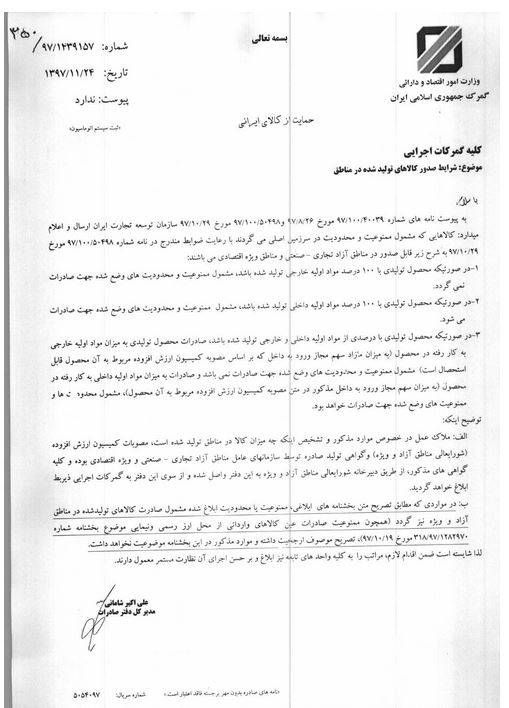 بسمه تعالی
وزارت امور اقتصاد و دارائی
گمرک جمهوری اسلامی ایران
۳۵۰/
شماره: ۹۷/۱۴۳۹۱۵۷
تاریخ: ۱۳۹۷/۱۱/۲۴
پیوست: ندارد
«ثبت سیستم اتوماسیون»
حمایت از کالای ایرانی
کلیه گمرکات اجرایی
موضوع: شرایط صدور کالاهای تولید شده در مناطق
با سلام
به پیوست نامه های شماره ۹۷/۱۰۰/۴۰۰۳۹ مورخ ۹۷/۸/۲۶ و ۹۷/۱۰۰/۵۰۴۹۸ مورخ ۹۷/۱۰/۲۹ سازمان توسعه تجارت ایران ارسال و اعلام
میدارد: کالاهایی که مشمول ممنوعیت و محدودیت در سرزمین اصلی می گردند با رعایت ضوابط مندرج در نامه شماره ۹۷/۱۰۰/۵۰۴۹۸ مورخ
۹۷/۱۰/۲۹ به شرح زیر قابل صدور در مناطق آزاد تجاری - صنعتی و مناطق ویژه اقتصادی می باشند:
۱- در صورتیکه محصول تولیدی با ۱۰۰ درصد مواد اولیه خارجی تولید شده باشد، مشمول ممنوعیت و محدودیت های وضع شده جهت صادرات
نمی گردد.
۲- در صورتیکه محصول تولیدی با ۱۰۰ درصد مواد اولیه داخلی تولید شده باشد، مشمول ممنوعیت و محدودیت های وضع شده جهت صادرات
می شود.
۳- در صورتیکه محصول تولیدی با درصدی از مواد اولیه داخلی و خارجی تولید شده باشد، صادرات محصول تولیدی به میزان مواد اولیه خارجی
به کار رفته در محصول (به میزان مازاد سهم مجاز ورود به داخل که بر اساس مصوبه کمیسیون ارزش افزوده مربوط به آن محصول قابل
استحصال است) مشمول ممنوعیت و محدودیت های وضع شده جهت صادرات نمی باشد و صادرات به میزان مواد اولیه داخلی به کار رفته در
محصول (به میزان سهم مجاز ورود به داخل مذکور در متن مصوبه کمیسیون ارزش افزوده مربوط به آن محصول)، مشمول ها و
ممنوعیت های وضع شده جهت صادرات خواهد بود.
توضیح اینکه:
الف: ملاک عمل در خصوص موارد مذکور و تشخیص اینکه چه میزان کالا در مناطق تولید شده است، مصوبات کمیسیون ارزش افزوده
(شورایعالی مناطق آزاد و ویژه) وگواهی تولید صادره توسط سازمانهای عامل مناطق آزاد تجاری - صنعتی و ویژه اقتصادی بوده و کلیه
گواهی های مذکور، از طریق دبیرخانه شورایعالی مناطق آزاد و ویژه به این دفتر واصل شده و از سوی این دفتر به گمرکات اجرایی ذیربط
ابلاغ خواهد گردید.
ب: در مواردی که مطابق تصریح متن بخشنامه های ابلاغی، ممنوعیت یا محدودیت ابلاغ شده مشمول صادرت کالاهای تولیدشده در مناطق
آزاد و ویژه نیز گردد (همچون ممنوعیت صادرات عین کالاهای وارداتی از محل ارز رسمی ونیمایی موضوع بخشنامه شماره
۳۱۸/۹۷/۱۲۸۲۹۷۰ مورخ ۹۷/۱۰/۱۹)، تصریح موصوف ارجحیت داشته و موارد مذکور در این بخشنامه موضوعیت نخواهد داشت.
لذا شایسته است ضمن اقدام لازم، مراتب را به کلیه واحد های تابعه نیز ابلاغ و بر حسن اجرای آن نظارت مستمر معمول دارند.
علی اکبر شامانی
مدیر کل دفتر صادرات
«نامه های صادره بدون مهر برجسته فاقد اعتبار است.»
شماره سریال: ۵۰۵۴۰۹۷